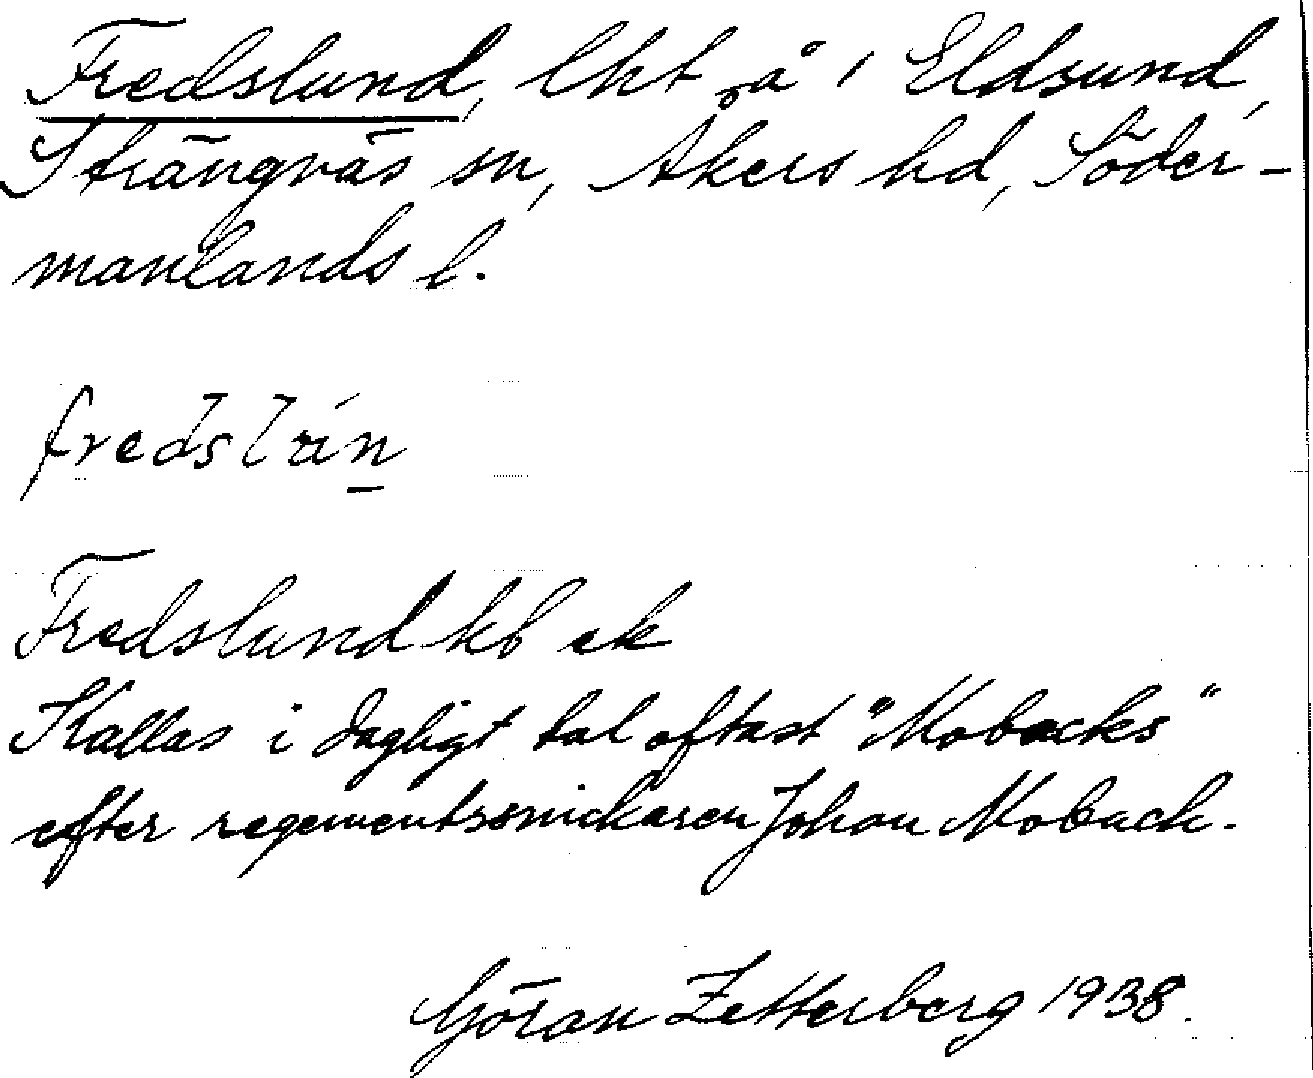 Fredslund, lht å i Eldsund,
Strängnäs sn, Åkers hd, Söder-
manlands l.
Fredslund kb ek
Kallas i dagligt tal oftast "Mobacks"
efter regementssnickaren Johan Moback.
Göran Zetterberg 1938.